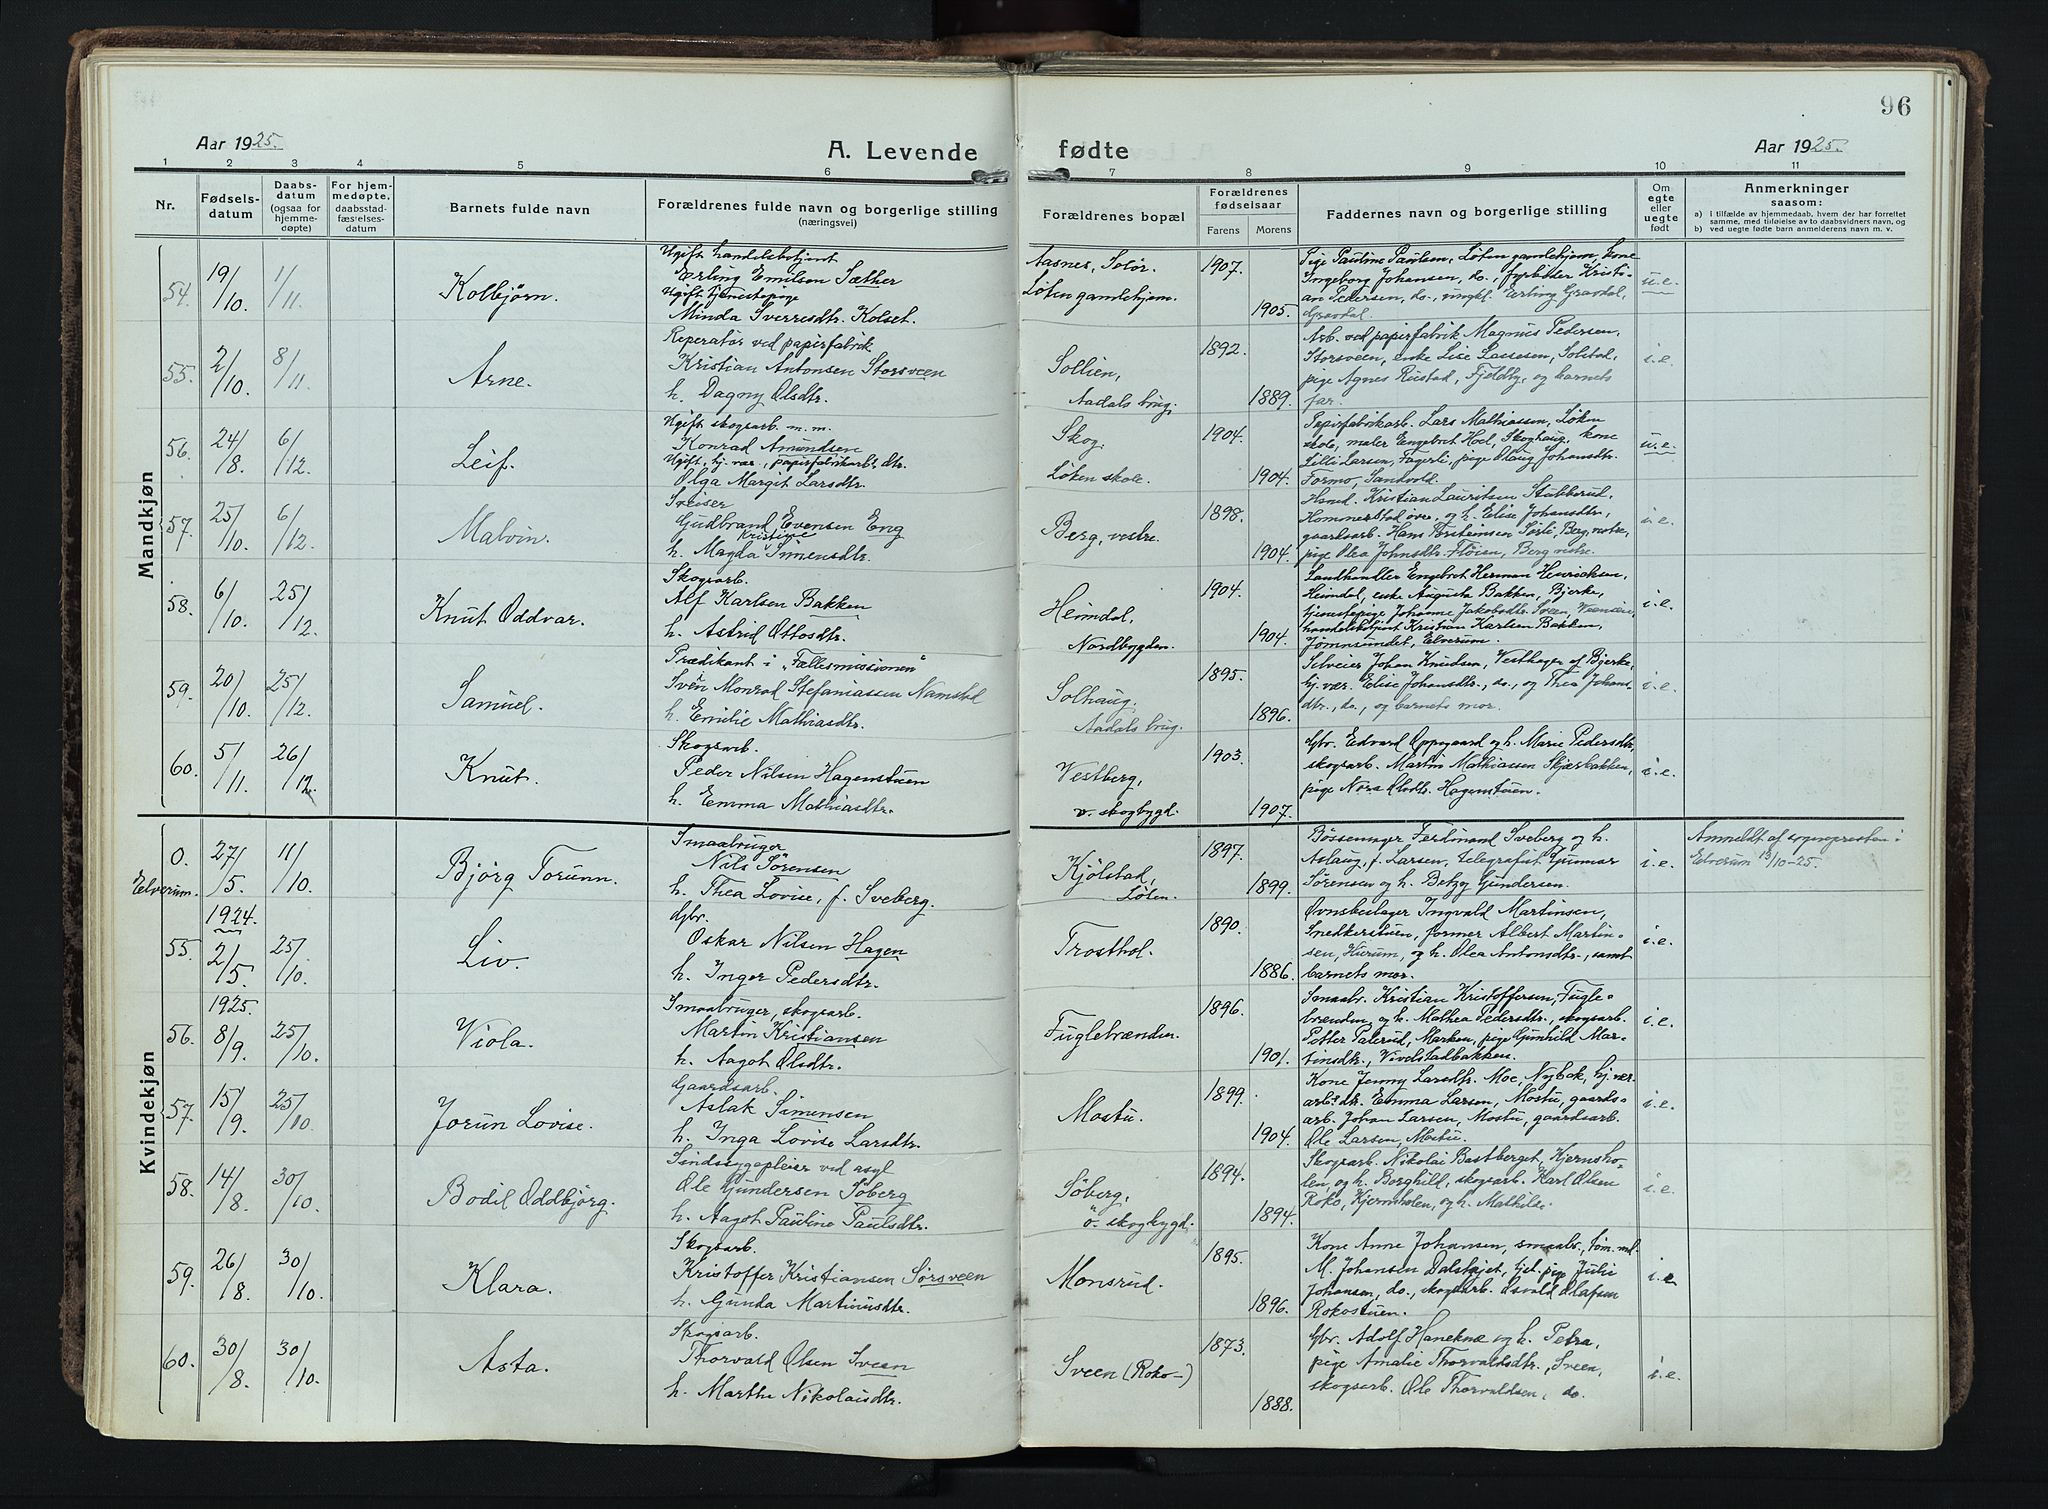 96
Aar 1925.
A. Levende fødte
Aar 1925.
1 2 3 4 5 6 7 8 9 10 11
Nr.
Fødsels-
datum
Daabs-
datum
(ogsaa for
hjemme-
døpte)
For hjem-
medøpte,
daabsstad-
fæstelses-
datum
Barnets fulde navn
Forældrenes fulde navn og borgerlige stilling
(næringsvei)
Forældrenes bopæl
Forældrenes
fødselsaar
Farens Morens
Faddernes navn og borgerlige stilling
Om
egte
eller
uegte
født
Anmerkninger
saasom:
a) i tilfælde av hjemmedaab, hvem der har forrettet
samme, med tilføielse av to daabsvidners navn, og
b) ved uegte fødte barn anmelderens navn m. v.
Mandkjøn
54. 19/10. 1/11. Kolbjørn.
Ugift handelsbetjent
Erling Emilsen Sæther
Ugift tjenestepige
Minda Sverresdtr. Kolset.
Aasnes, Solør.
Løten gamlehjem.
1907.
1905.
Pige Pauline Paulsen, Løten gamlehjem, kone
Ingeborg Johansen, do., fyrbøter Kristi-
an Pedersen, do., ungkl. Erling Gravdal,
Gravdal.
u.e.
55. 2/10. 8/11. Arne.
Reperatør ved papirfabrik
Kristian Antonsen Storsveen
h. Dagny Olsdtr.
Sollien,
Aadals brug.
1892.
1889.
Arb. ved papirfabrik Magnus Pedersen,
Storsveen, enke Lise Lassesen, Solstad,
pige Agnes Rustad, Fjeldby, og barnets
far.
i.e.
56. 24/8. 6/12. Leif.
Ugift skogsarb. m. m.
Konrad Amundsen
Ugift, hj. vær., papirfabrikarb.s dtr.
Olga Margit Larsdtr.
Skog.
Løken skole.
1904.
1904.
Papirfabrikarb. Lars Mathiassen, Løken
skole, maler Engebret Hoel, Skoghaug, kone
Lilli Larsen, Fagerli, pige Olaug Johansdtr.
Formo, Sandvold.
u.e.
57. 25/10. 6/12. Malvin.
Sveiser
Gudbrand Evensen Eng
Kristine
h. Magda Simensdtr.
Berg, vestre.
1898.
1904.
Hsmd. Kristian Lauritsen Stubberud,
Hommerstad øvre, og h. Elise Johansdtr,
gaardsarb. Hans Torsteinsen Sørli, Berg, vestre,
pige Olea Johnsdtr. Fløien, Berg vestre.
i.e.
58. 6/10. 25/12. Knut Oddvar.
Skogsarb.
Alf Karlsen Bakken
h. Astrid Ottosdtr.
Heimdal,
Nordbygden.
1904.
1904.
Landhandler Engebret Herman Henriksen,
Heimdal, enke Augusta Bakken, Bjerke,
tjenestepige Johanne Jakobsdtr. Sveen,
handelsbetjent Kristian Karlsen Bakken,
Jømnsundet, Elverum.
i.e.
59. 20/10. 25/12. Samuel.
Prædikant i „Fællesmissionen"
Svèn Monrad Stefaniassen Namstad
h. Emilie Mathiasdtr.
Solhaug,
Aadals brug.
1895.
1896.
Selveier Johan Knudsen, Vesthagen af Bjerke,
hj. vær. Elise Johansdtr., do., og Thea Johans-
dtr., do., og barnets mor.
i.e.
60. 5/11. 26/12. Knut.
Skogsarb.
Peder Nilsen Hagenstuen
h. Emma Mathiasdtr.
Vestberg,
v. skogbygd.
1903.
1907.
Gbr. Edvard Oppegaard og h. Marie Pedersdtr,
skogsarb. Martin Mathiassen Skjærbakken,
pige Nora Olsdtr. Hagenstuen.
i.e.
Kvindekjøn
0.
Elverum. 27/5. 11/10. Bjørg Torunn.
Smaabruger
Nils Sørensen
h. Thea Lovise, f. Sveberg.
Kjølstad,
Løten.
1897.
1899.
Bøssemager Ferdinand Sveberg og h.
Aslaug, f. Larsen, telegrafist Gunnar
Sørensen og h. Betzy Gundersen.
i.e.
Anmeldt af sognepresten i
Elverum 13/10-25.
55. 1924. 2/5. 25/10. Liv.
Gbr.
Oskar Nilsen Hagen
h. Inger Pedersdtr.
Trosthol.
1890.
1886.
Ovnsbeslager Ingvald Martinsen,
Snedkerstuen, former Albert Martin-
sen, Hurum, og h. Olea Antonsdtr., samt
barnets mor.
i.e.
56. 1925. 8/9. 25/10. Viola.
Smaabruger, skogsarb.
Martin Kristiansen
h. Aagot Olsdtr.
Fuglebrænden.
1896.
1901.
Smaabr. Kristian Kristoffersen, Fugle-
brænden, og h. Mathea Pedersdtr., skogsarb.
Petter Palerud, Marken, pige Gunhild Mar-
tinsdtr., Vivelstadbakken.
i.e.
57. 15/9. 25/10. Jorun Lovise.
Gaardsarb.
Aslak Simensen
h. Inga Lovise Larsdtr.
Mostu.
1899.
1904.
Kone Jenny Larsdtr. Moe, Nybak, hj. vær.
arb.s dtr. Emma Larsen, Mostu, gaards-
arb. Johan Larsen, Mostu, gaardsarb.
Ole Larsen, Mostu.
i.e.
58. 14/8. 30/10. Bodil Oddbjørg.
Sindssygepleier ved asyl
Ole Gundersen Søberg
h. Aagot Pauline Paulsdtr.
Søberg,
ö. skogbygd.
1894.
1894.
Skogsarb. Nikolai Bastberget, Kjernsho-
len, og h. Borghild, skogsarb. Karl Olsen
Roko, Kjernsholen, og h. Mathilde.
i.e.
59. 26/8. 30/10. Klara.
Skogsarb.
Kristoffer Kristiansen Sørsveen
h. Gunda Martinusdtr.
Monsrud.
1895.
1896.
Kone Anne Johansen, smaabr., tøm. ml.
M. Johansen Dalshjet, hjel. pige Julie
Johansen, do., skogsarb. Osvald Olafsen
Rokostuen.
i.e.
60. 30/8. 30/10. Asta.
Skogsarb.
Thorvald Olsen Sveen
h. Marthe Nikolaisdtr.
Sveen (Roko-)
1873.
1888.
Gbr. Adolf Haneknæ og h. Petra,
pige Amalie Thorvaldsdtr., Sveen,
skogsarb. Ole Thorvaldsen, do.
i.e.